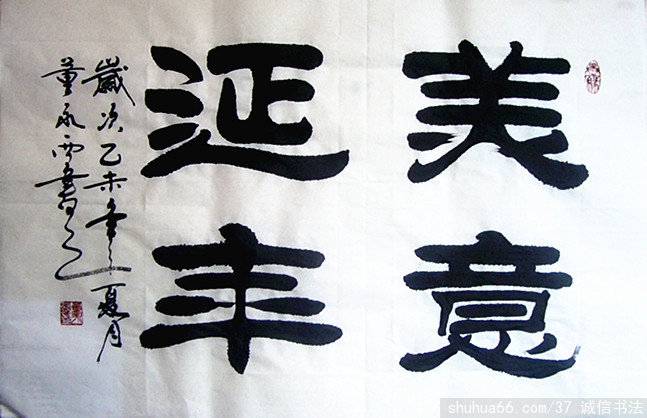 美意
延年
歲次乙未年之夏月
董永西書
shuhua66.com/37 诚信书法